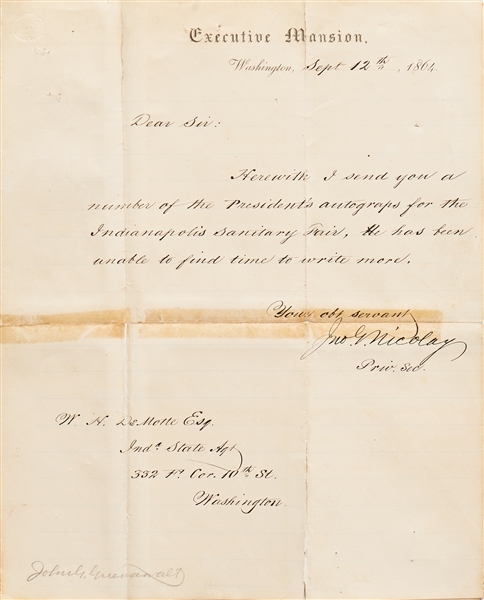 Executive Mansion,
Washington, Sept 12th, 1864.
Dear Sir:
Herewith I send you a
number of the President's autograps for the
Indianapolis Sanitary Fair, He has been
unable to find time to write more.
Your obt servant
Jno G Nicolay
Priv. Sec.
W. H. DeMotte Esq.
Inda State Agt
332 F. Cor. 10th St.
Washington.